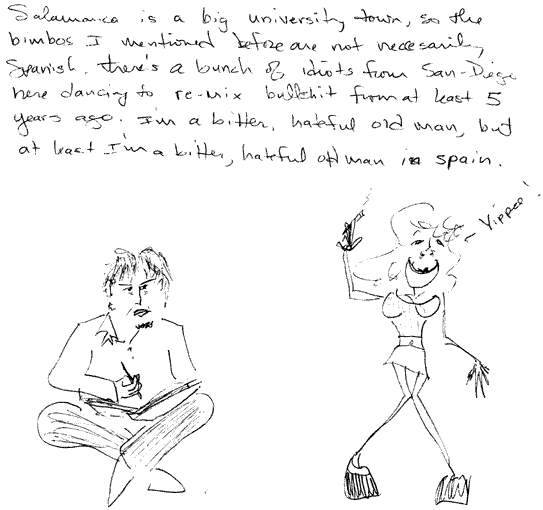 Salamanca is a big university town, so the
bimbos I mentioned before are not necessarily
Spanish. There's a bunch of idiots from San-Diego
here dancing to re-mix bullshit from at least 5
years ago. I'm a bitter, hateful old man, but
at least I'm a bitter, hateful old man in spain.
~ Yippee!